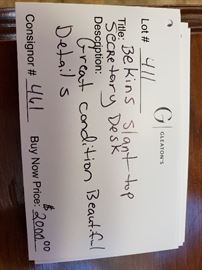 Lot # 411
G
GLEATON'S
Title: Bekins Slant-top
Secretary Desk
Description:
Great condition Beautiful
Details
Consignor # 461 Buy Now Price: $2000.00